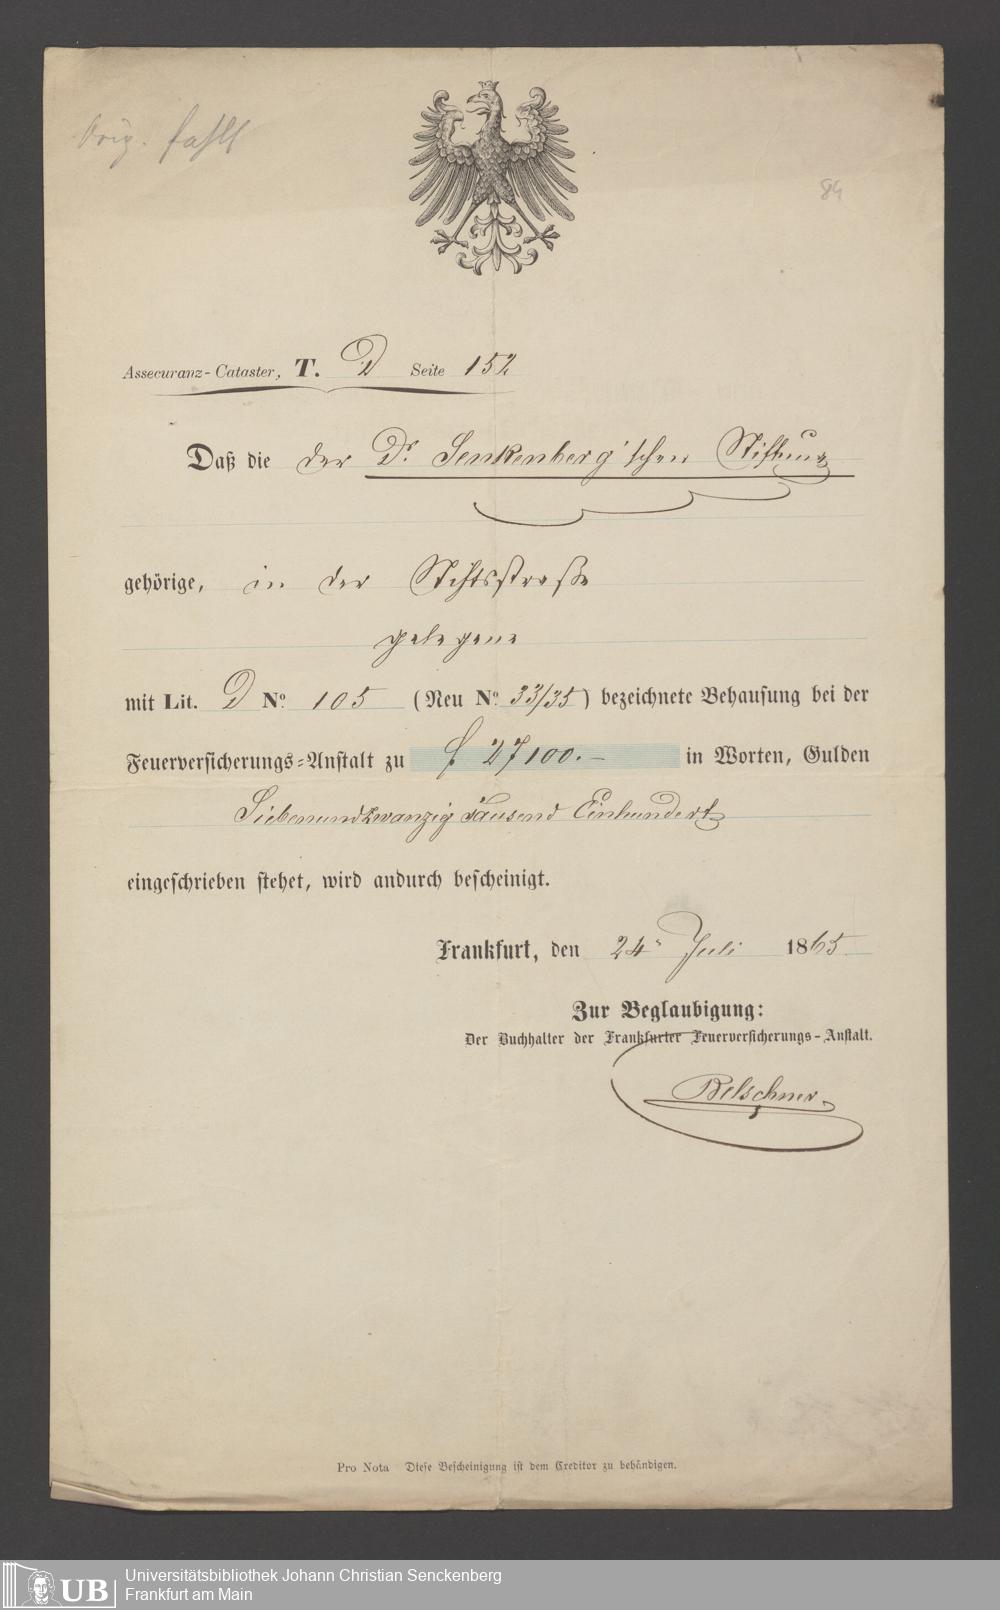 Orig. fehlt
89
Assecuranz-Cataster, T. D Seite 152
Daß die der Dr. Senkenberg'schen Stiftung
gehörige, in der Stiftsstraße
gelegene
mit Lit. D No. 105 (Neu No. 33/35) bezeichnete Behausung bei der
Feuerversicherungs-Anstalt zu f 27100.— in Worten, Gulden
Siebenundzwanzig Tausend Einhundert
eingeschrieben stehet, wird andurch bescheinigt.
Frankfurt, den 24n Juli 1865
Zur Beglaubigung:
Der Buchhalter der Frankfurter Feuerversicherungs-Anstalt.
Belschner
Pro Nota Diese Bescheinigung ist dem Creditor zu behändigen.
UB
Universitätsbibliothek Johann Christian Senckenberg
Frankfurt am Main